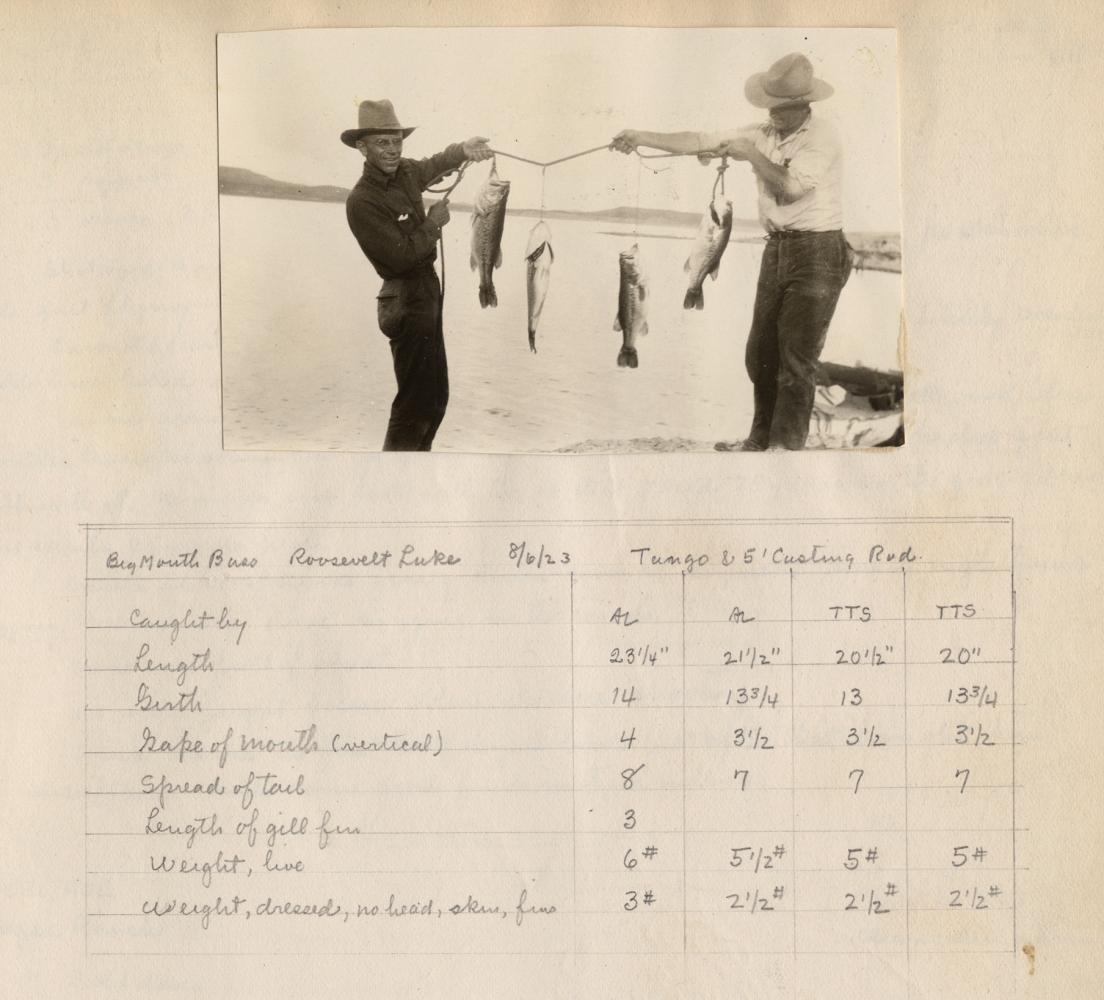 Big Mouth Bass Roosevelt Lake 8/6/23 Tango & 5' Casting Rod.
Caught by AL AL TTS TTS
Length 23 1/4" 21 1/2" 20 1/2" 20"
Girth 14 13 3/4 13 13 3/4
Gape of mouth (vertical) 4 3 1/2 3 1/2 3 1/2
Spread of tail 8 7 7 7
Length of gill fin 3
Weight, live 6# 5 1/2# 5# 5#
Weight, dressed, no head, skin, fins 3# 2 1/2# 2 1/2# 2 1/2#